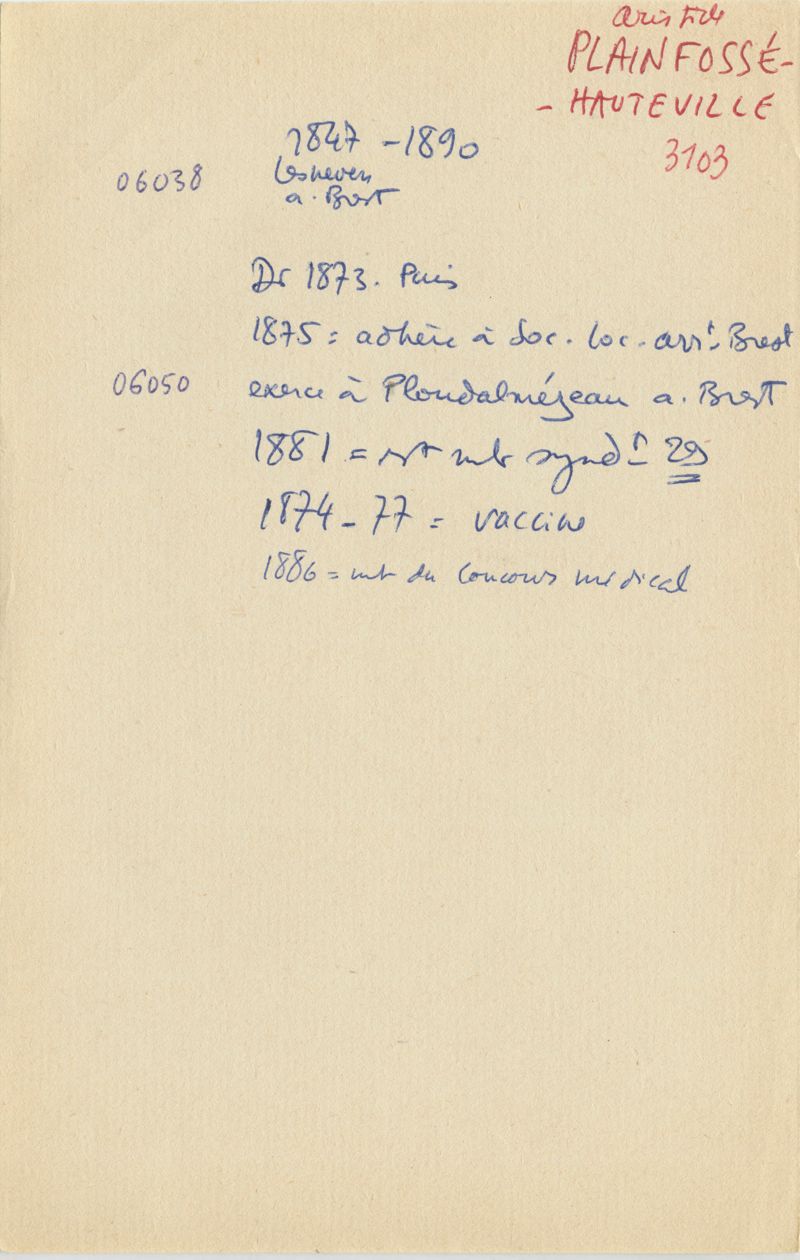 Aristide
PLAINFOSSÉ-
- HAUTEVILLE
3103
1847 - 1890
06038 Lesneven
a. Brest
Dr 1873. Paris
1875 = adhère à Soc. loc. arrt Brest
06050 exerce à Ploudalmézeau a. Brest
1881 = est mb synd t 29
1874 - 77 = vaccine
1886 = mb du Concours médical